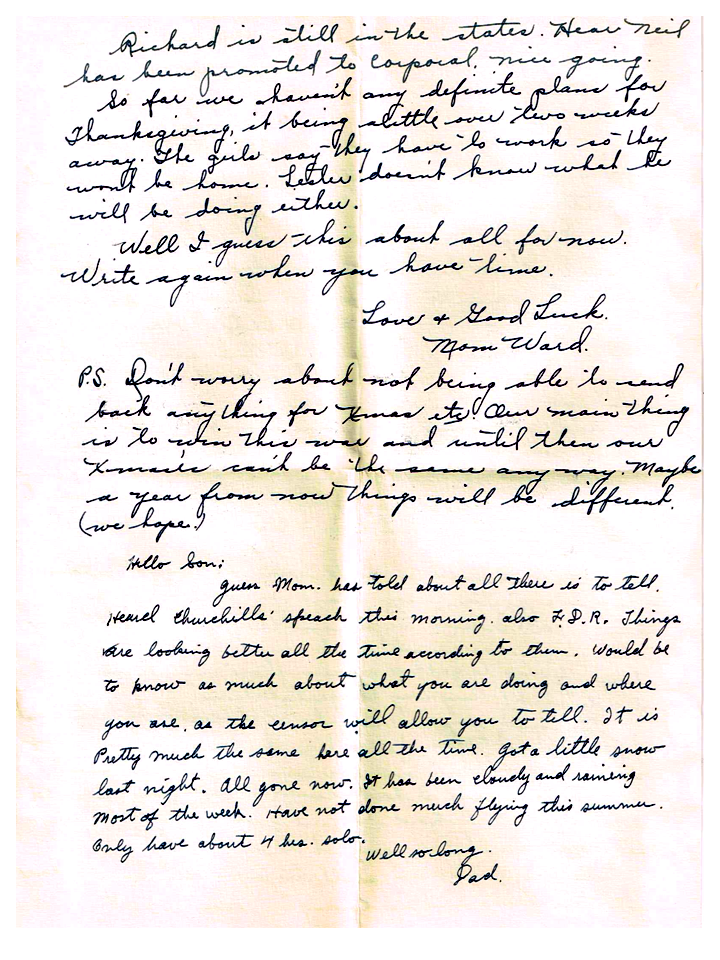 Richard is still in the states. Hear Neil
has been promoted to corporal, nice going.
So far we haven't any definite plans for
Thanksgiving, it being a little over two weeks
away. The girls say they have to work so they
won't be home. Lester doesn't know what he
will be doing either.
Well I guess this about all for now.
Write again when you have time.
Love & Good Luck.
Mom Ward.
P.S. Don't worry about not being able to send
back anything for Xmas etc. Our main thing
is to win this war and until then our
Xmas's can't be the same any way. Maybe
a year from now things will be different.
(we hope.)
Hello Son;
guess Mom. has told about all there is to tell.
Heard Churchills' speach this morning. also F.D.R. Things
are looking better all the time according to them. Would be
to know as much about what you are doing and where
you are, as the censor will allow you to till. It is
Pretty much the same here all the time. Got a little snow
last night. All gone now. It has been cloudy and raining
Most of the week. Have not done much flying this summer.
Only have about 4 hrs. solo.
Well so long.
Dad.